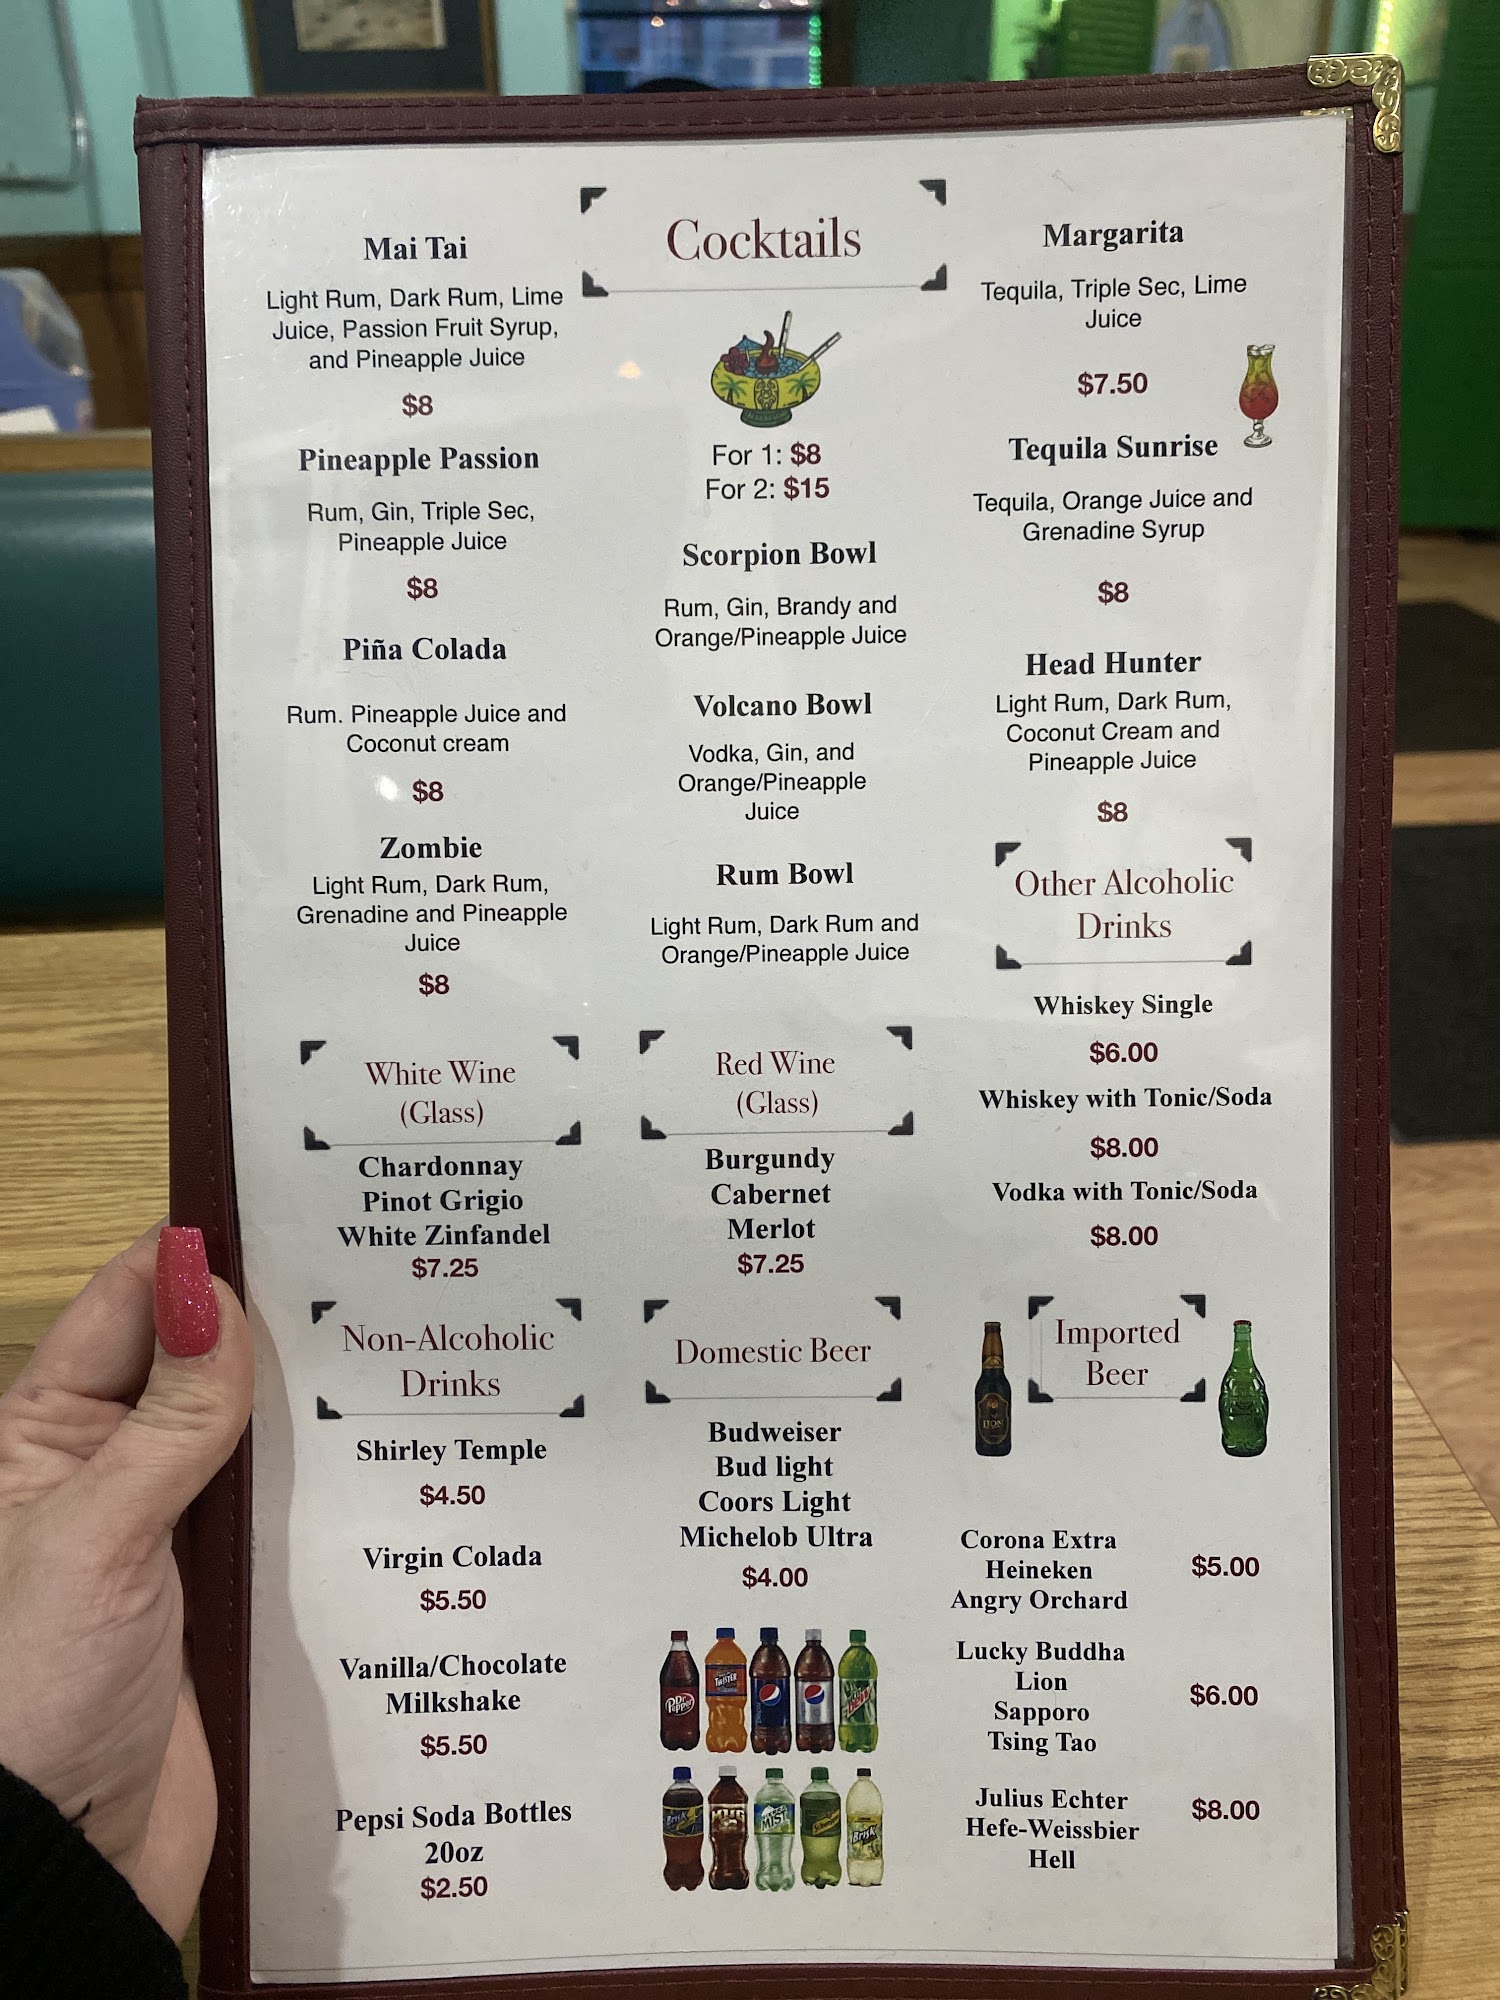 Cocktails
Mai Tai
Light Rum, Dark Rum, Lime
Juice, Passion Fruit Syrup,
and Pineapple Juice
$8
Pineapple Passion
Rum, Gin, Triple Sec,
Pineapple Juice
$8
Piña Colada
Rum. Pineapple Juice and
Coconut cream
$8
Zombie
Light Rum, Dark Rum,
Grenadine and Pineapple
Juice
$8
For 1: $8
For 2: $15
Scorpion Bowl
Rum, Gin, Brandy and
Orange/Pineapple Juice
Volcano Bowl
Vodka, Gin, and
Orange/Pineapple
Juice
Rum Bowl
Light Rum, Dark Rum and
Orange/Pineapple Juice
Margarita
Tequila, Triple Sec, Lime
Juice
$7.50
Tequila Sunrise
Tequila, Orange Juice and
Grenadine Syrup
$8
Head Hunter
Light Rum, Dark Rum,
Coconut Cream and
Pineapple Juice
$8
Other Alcoholic
Drinks
Whiskey Single
$6.00
Whiskey with Tonic/Soda
$8.00
Vodka with Tonic/Soda
$8.00
White Wine
(Glass)
Chardonnay
Pinot Grigio
White Zinfandel
$7.25
Red Wine
(Glass)
Burgundy
Cabernet
Merlot
$7.25
Non-Alcoholic
Drinks
Shirley Temple
$4.50
Virgin Colada
$5.50
Vanilla/Chocolate
Milkshake
$5.50
Pepsi Soda Bottles
20oz
$2.50
Domestic Beer
Budweiser
Bud light
Coors Light
Michelob Ultra
$4.00
Dr Pepper
TWISTER
pepsi
Brisk
MUG
MIST
Schweppes
Brisk
Imported
Beer
LION
Corona Extra
Heineken
Angry Orchard
$5.00
Lucky Buddha
Lion
Sapporo
Tsing Tao
$6.00
Julius Echter
Hefe-Weissbier
Hell
$8.00